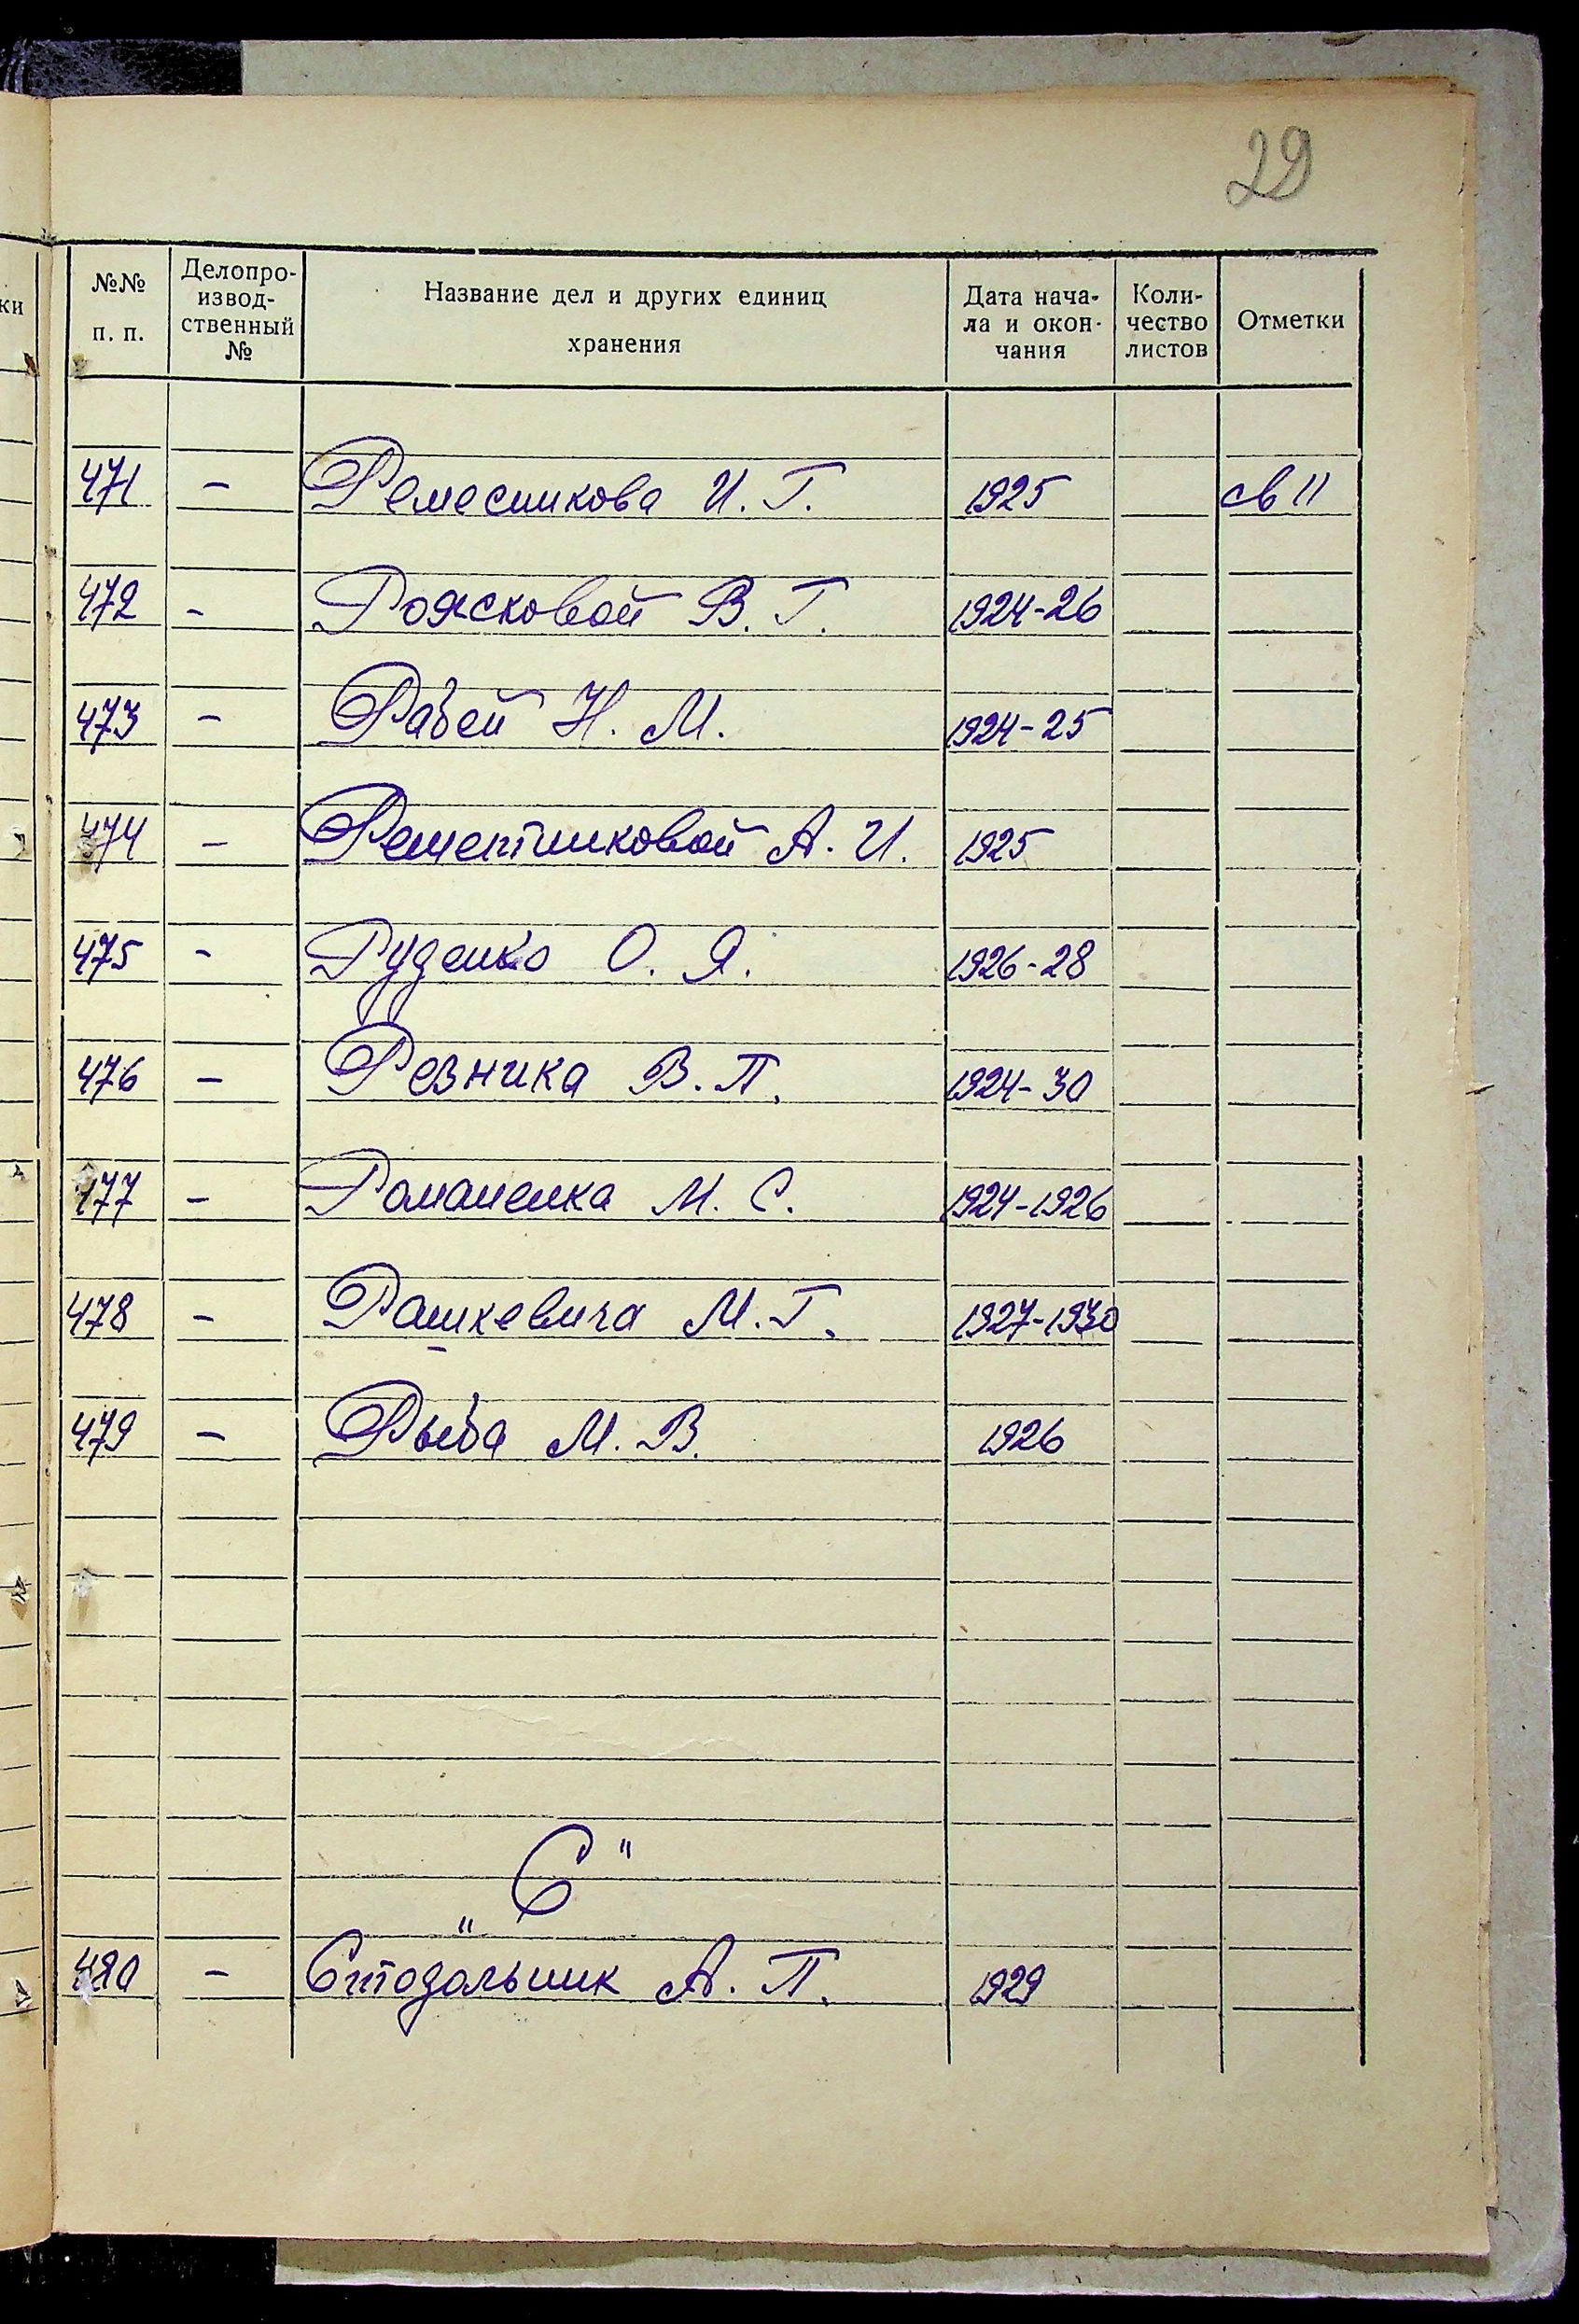 29
№№ п. п. Делопро-извод-ственный № Название дел и других единиц хранения Дата нача-ла и окон-чания Коли-чество листов Отметки
471 - Ремесникова И. Г. 1925 св 11
472 - Роясковой В. Г. 1924-26
473 - Рабей Н. М. 1924-25
474 - Решетниковой А. И. 1925
475 - Руденко О. Я. 1926-28
476 - Резника В. П. 1924-30
477 - Романенка М. С. 1924-1926
478 - Рашкевича М. Г. 1927-1930
479 - Рыба М. В. 1926
„С"
480 - Стодольник А. П. 1929